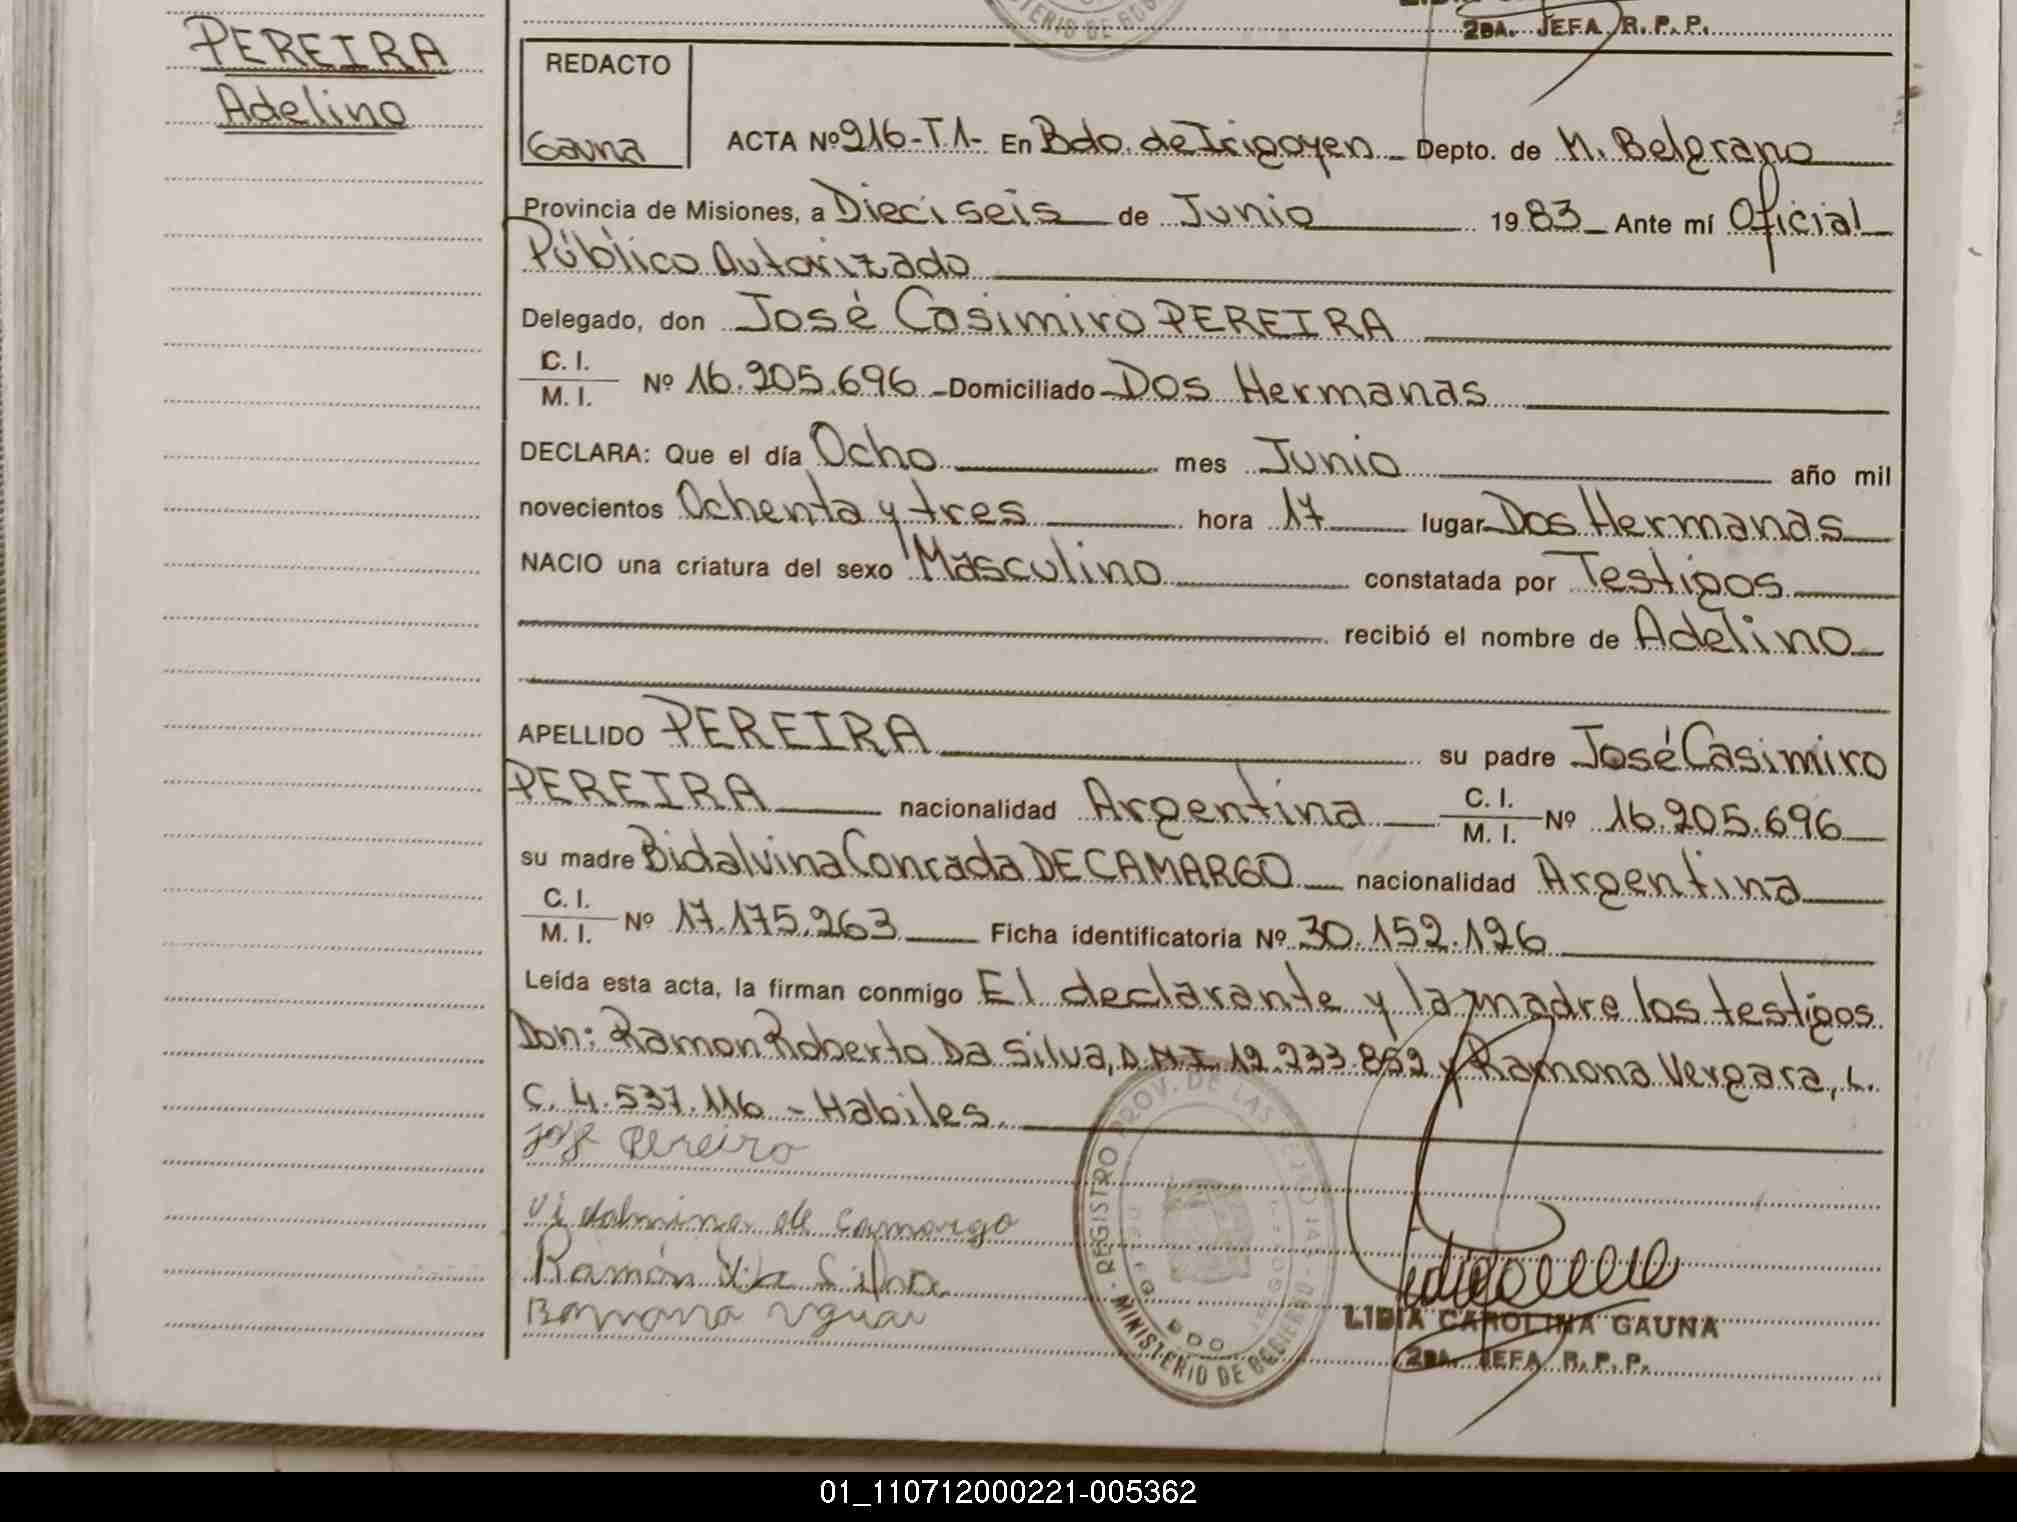 2DA. JEFA R. P. P.
PEREIRA
Adelino
REDACTO
Gauna
ACTA Nº 216-T.1- En Bdo. de Irigoyen Depto. de M. Belgrano
Provincia de Misiones, a Dieciseis de Junio 1983 Ante mí Oficial
Público Autorizado
Delegado, don José Casimiro PEREIRA
C. I.
M. I. Nº 16.205.696 - Domiciliado - Dos Hermanas
DECLARA: Que el día Ocho mes Junio año mil
novecientos Ochenta y tres hora 17 lugar Dos Hermanas
NACIO una criatura del sexo Masculino constatada por Testigos
recibió el nombre de Adelino
APELLIDO PEREIRA su padre José Casimiro
PEREIRA nacionalidad Argentina C. I. M. I. Nº 16.205.696
su madre Bidalvina Conrada DE CAMARGO nacionalidad Argentina
C. I.
M. I. Nº 17.175.263 Ficha identificatoria Nº 30.152.126
Leída esta acta, la firman conmigo El declarante y la madre los testigos
Don: Ramon Roberto Da Silva, D.N.I. 12.233.852 y Ramona Vergara, L.
C. 4.537.116 - Habiles.
José Pereira
Vidalmina de Camargo
Ramón Da Silva
REGISTRO PROV. DE LAS PERSONAS
MINISTERIO DE GOBIERNO
LIDIA CAROLINA GAUNA
2DA. JEFA R. P. P.
01_110712000221-005362